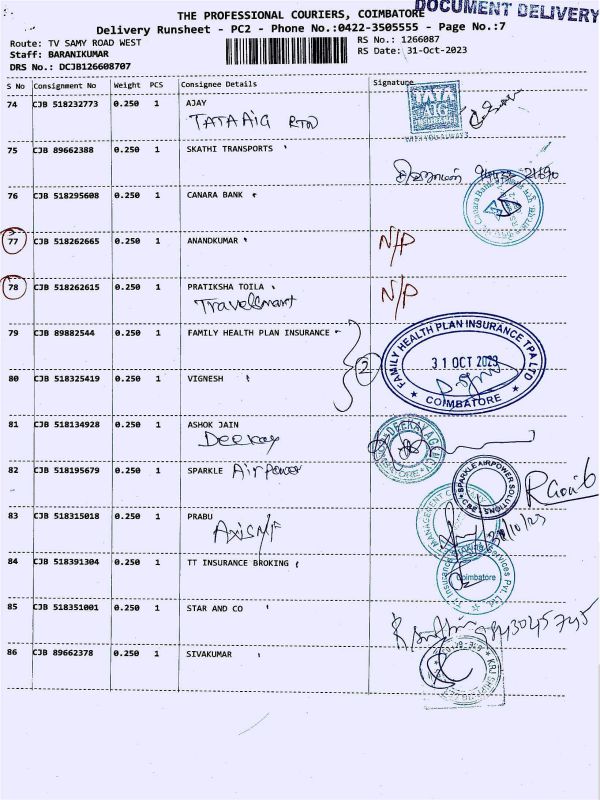 DOCUMENT DELIVERY
THE PROFESSIONAL COURIERS, COIMBATORE
Delivery Runsheet - PC2 - Phone No.:0422-3505555 - Page No.:7
Route: TV SAMY ROAD WEST
RS No.: 1266087
Staff: BARANIKUMAR
RS Date: 31-Oct-2023
DRS No.: DCJB126608707
S No Consignment No Weight PCS Consignee Details Signature
74 CJB 518232773 0.250 1 AJAY
TATA AIG RTO
TATA AIG
75 CJB 89662388 0.250 1 SKATHI TRANSPORTS
76 CJB 518295608 0.250 1 CANARA BANK
Canara Bank
77 CJB 518262665 0.250 1 ANANDKUMAR N/P
78 CJB 518262615 0.250 1 PRATIKSHA TOILA N/P
Travelsmart
79 CJB 89882544 0.250 1 FAMILY HEALTH PLAN INSURANCE
2
FAMILY HEALTH PLAN INSURANCE TPA LTD
31 OCT 2023
COIMBATORE
80 CJB 518325419 0.250 1 VIGNESH
81 CJB 518134928 0.250 1 ASHOK JAIN
Deekay
DEEKAY AGENCY
82 CJB 518195679 0.250 1 SPARKLE Airpower
SPARKLE AIRPOWER SOLUTIONS
CBE
83 CJB 518315018 0.250 1 PRABU
Axis MF
MANAGEMENT
31/10/23
84 CJB 518391304 0.250 1 TT INSURANCE BROKING
TT Insurance Broking Services Pvt. Ltd.
Coimbatore
85 CJB 518351001 0.250 1 STAR AND CO
9843045745
86 CJB 89662378 0.250 1 SIVAKUMAR